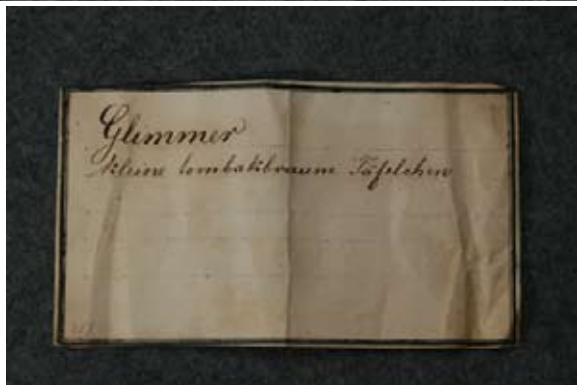 Glimmer
kleine tombakbraune Täfelchen